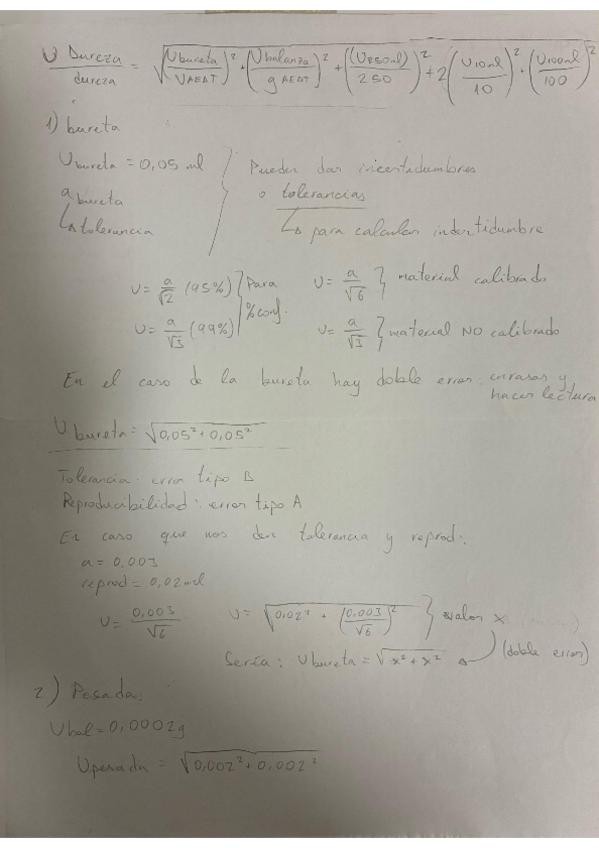 U Dureza / dureza = √((Ubureta / VAEDT)² + (Ubalanza / g AEDT)² + ((U250ml) / 250)² + 2(U10ml / 10)² + (U100ml / 100)²)
1) bureta
Ubureta = 0,05 ml
a bureta
↳ tolerancia
Pueden dar incertidumbres
o tolerancias
↳ para calcular incertidumbre
U = a/√2 (95%)
U = a/√3 (99%)
Para
% conf.
U = a/√6 } material calibrado
U = a/√3 } material NO calibrado
En el caso de la bureta hay doble error: enrasar y
hacer lectura
Ubureta = √(0,05² + 0,05²)
Tolerancia: error tipo B
Reproducibilidad: error tipo A
En caso que nos den tolerancia y reprod:
a = 0,003
reprod = 0,02 ml
U = 0,003/√6
U = √(0,02² + (0,003/√6)²) } valor x
Sería: Ubureta = √(x² + x²)
(doble error)
2) Pesada:
Ubal = 0,0002g
Upesada = √(0,002² + 0,002²)